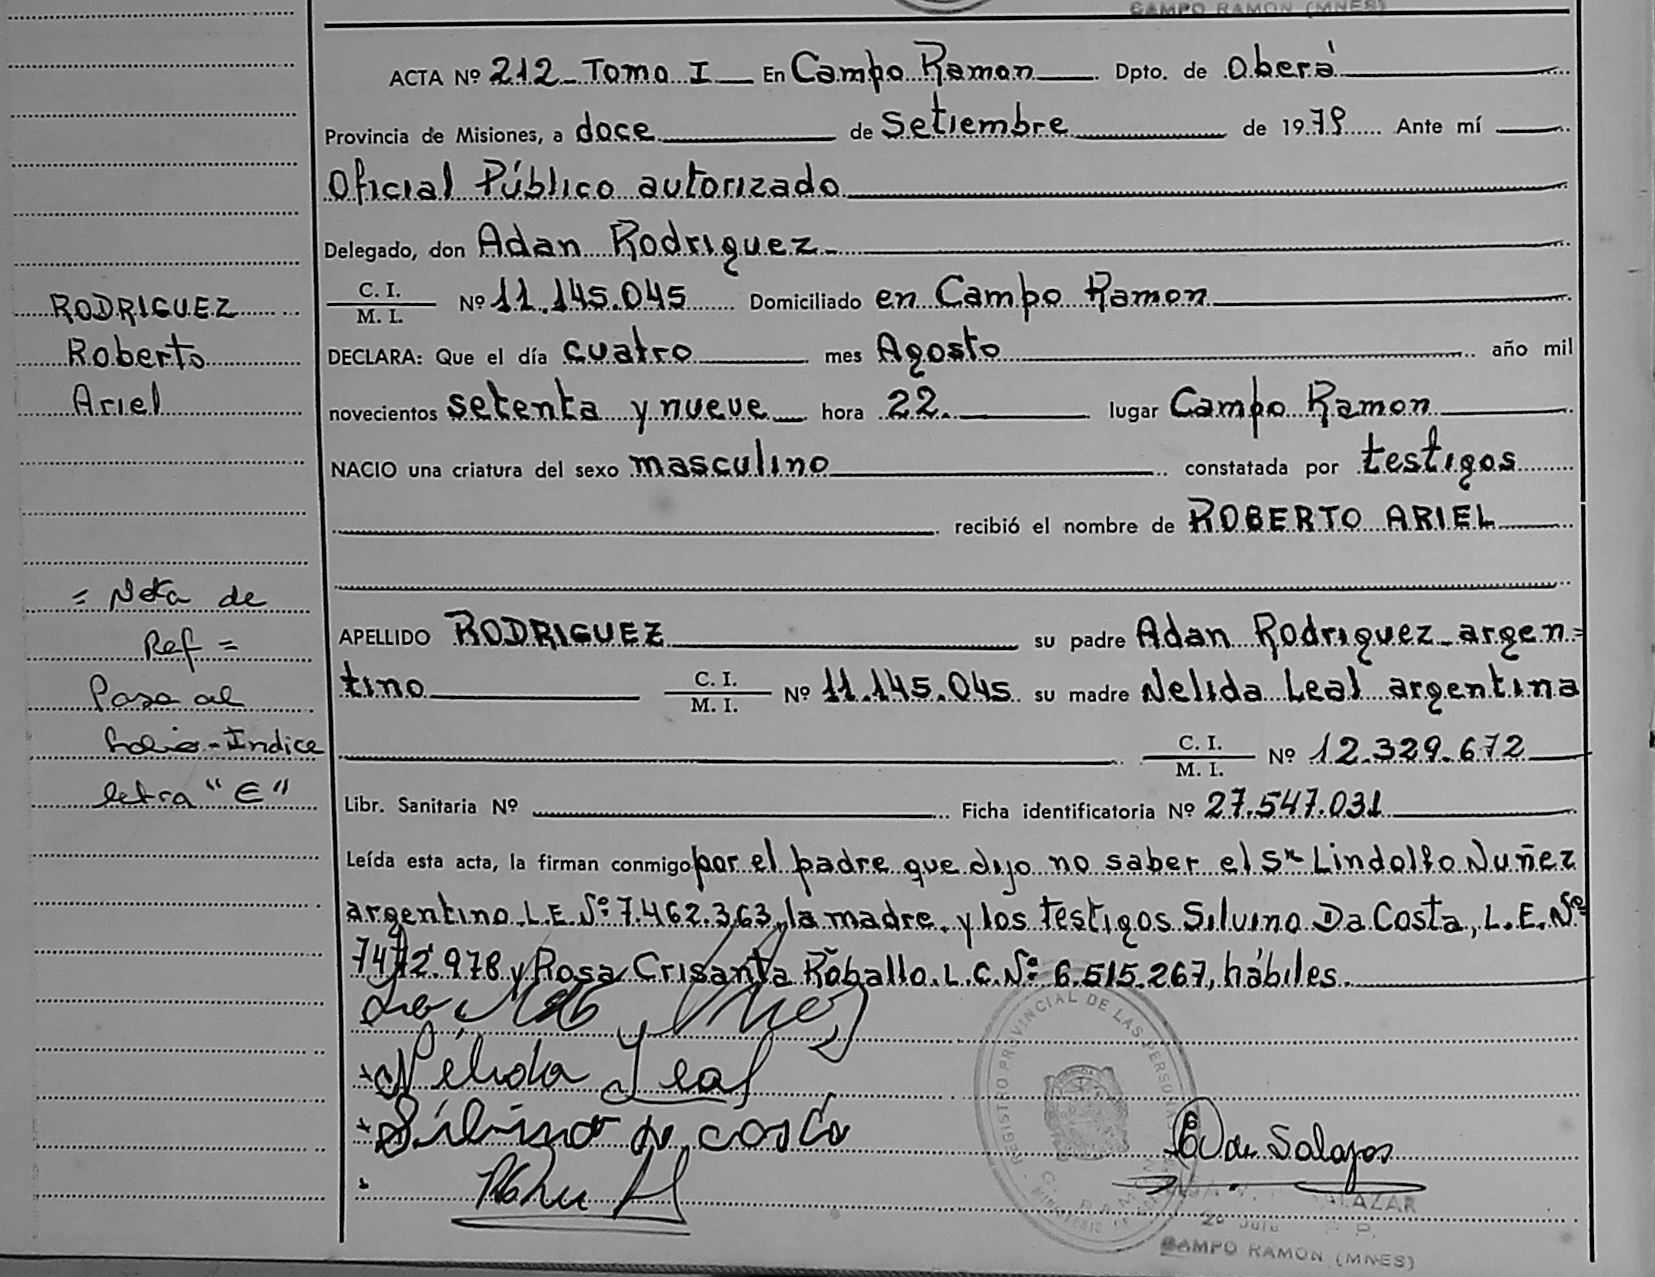 CAMPO RAMON (MNES)
ACTA Nº 212 - Tomo I En Campo Ramon Dpto. de Oberá
Provincia de Misiones, a doce de Setiembre de 1979 Ante mí
Oficial Público autorizado
Delegado, don Adan Rodriguez
C. I. / M. I. Nº 11.145.045 Domiciliado en Campo Ramon
DECLARA: Que el día cuatro mes Agosto año mil
novecientos setenta y nueve hora 22. lugar Campo Ramon
NACIO una criatura del sexo masculino constatada por testigos
recibió el nombre de ROBERTO ARIEL
APELLIDO RODRIGUEZ su padre Adan Rodriguez - argen=
tino C. I. / M. I. Nº 11.145.045 su madre Nelida Leal argentina
C. I. / M. I. Nº 12.329.672
Libr. Sanitaria Nº Ficha identificatoria Nº 27.547.031
Leída esta acta, la firman conmigo por el padre que dijo no saber el Sr Lindolfo Nuñez
argentino L.E. Nº 7.462.363, la madre y los testigos Silvino Da Costa, L.E. Nº
978 y Rosa Crisanta Roballo L.C. Nº 6.515.267, hábiles.
Nélida Leal
Silvino da costa
REGISTRO PROVINCIAL DE LAS PERSONAS
CAMPO RAMON (MNES)
RODRIGUEZ
Roberto
Ariel
= Nota de
Ref =
Pasa al
folio - Indice
letra "E"